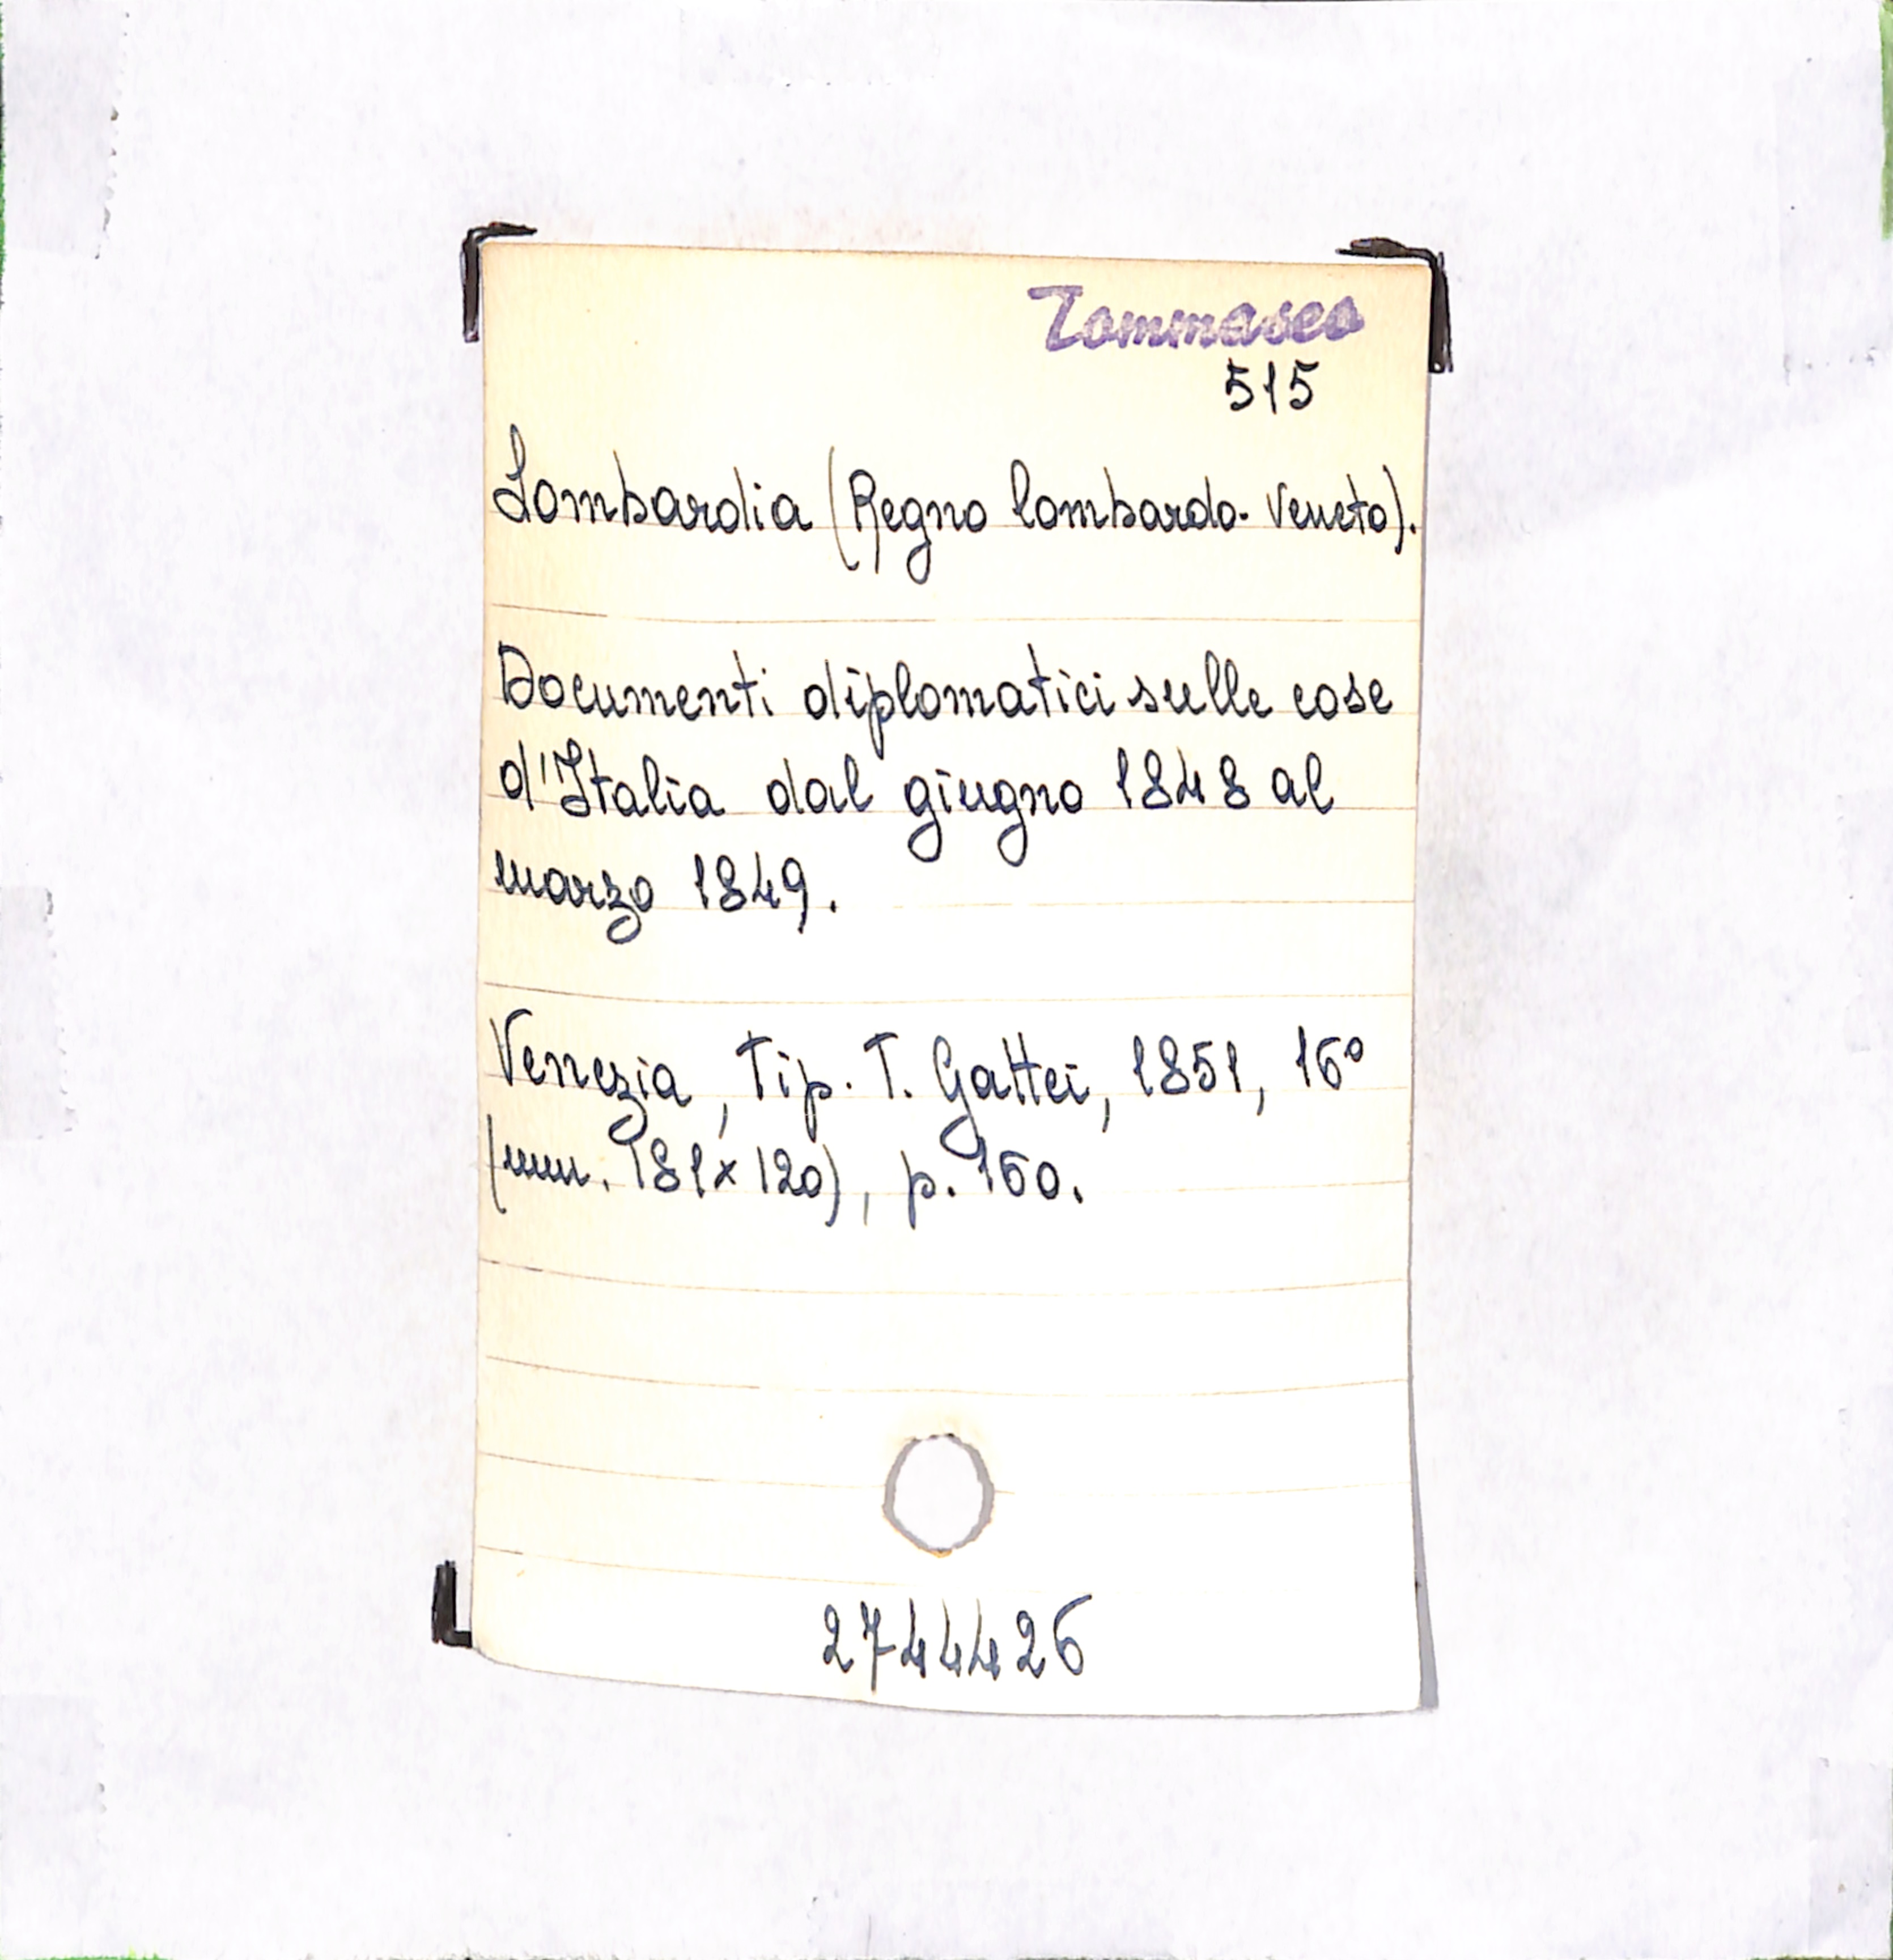 Tommaseo
515
Lombardia (Regno lombardo-Veneto).
Documenti diplomatici sulle cose
d'Italia dal giugno 1848 al
marzo 1849.
Venezia, Tip. T. Gattei, 1851, 16°
(mm. 181x120), p. 160.
2744426